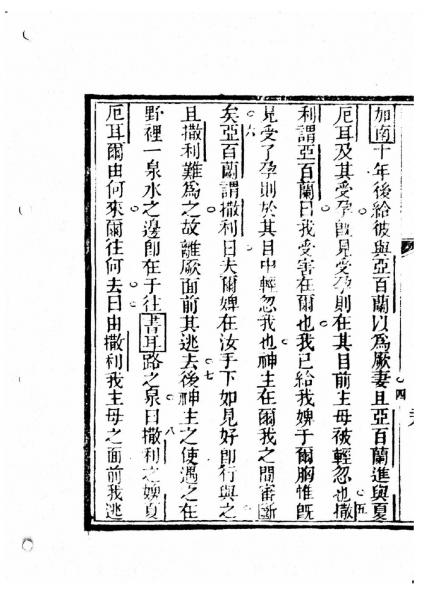 加南十年後給彼與亞百蘭以為厥妻且亞百蘭進與夏
四
厄耳及其受孕旣見受孕則在其目前主母被輕忽也撒
五
利謂亞百蘭曰我受害在爾也我已給我婢于爾胸惟旣
見受了孕則於其目中輕忽我也神主在爾我之間審斷
六
矣亞百蘭謂撒利曰夫爾婢在汝手下如見好卽行與之
且撒利難為之故離厥面前其逃去後神主之使遇之在
七
野裡一泉水之邊卽在于往書耳路之泉曰撒利之婢夏
八
厄耳爾由何來爾往何去曰由撒利我主母之面前我逃